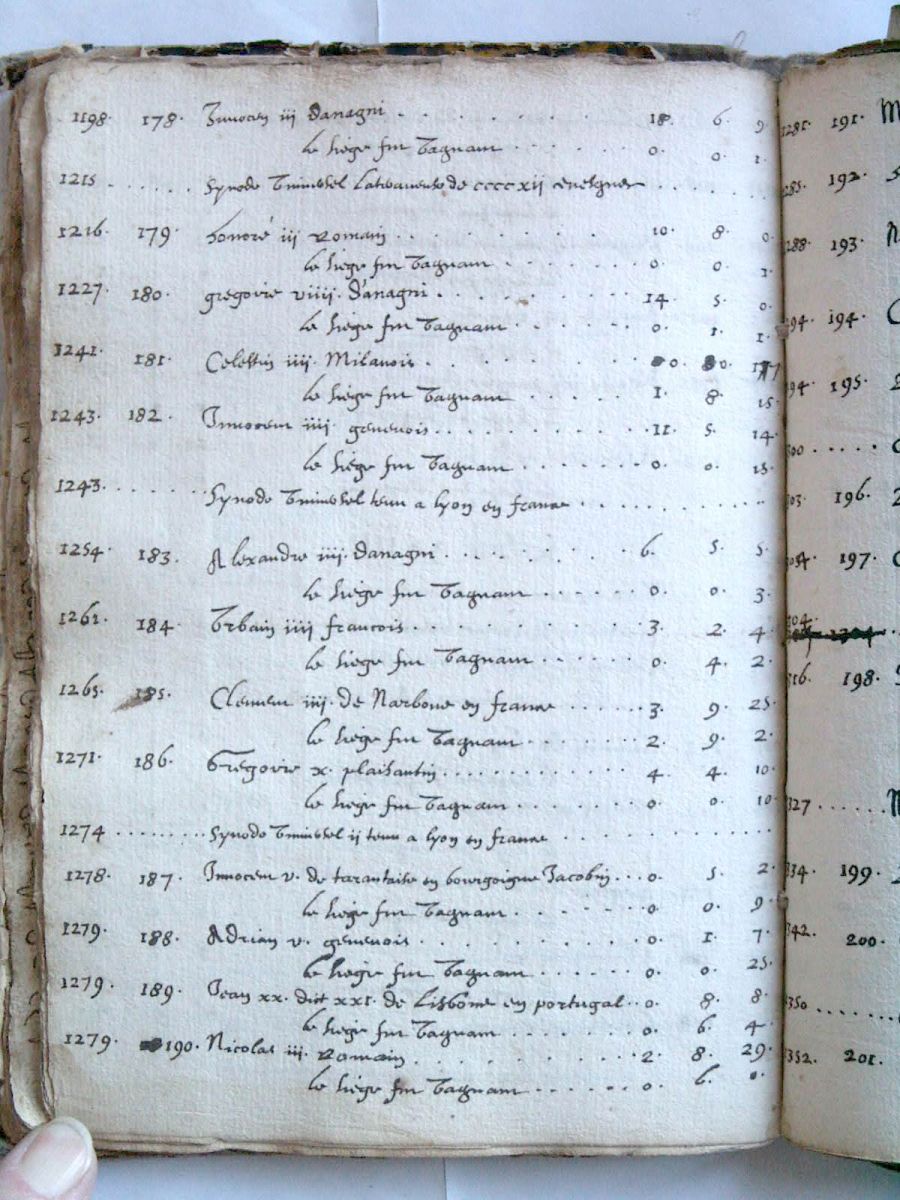 1198. 178. Innocen iii Danagni . . . . . . . 18. 6. 9.
le siege fut vaquant . . . . . . 0. 0. 1.
1215 . . . . . . . Synode universel Latranense de ccccxii evesques . . . . .
1216 179. honoré iii Romain . . . . . . . . 10. 8. 0.
le siege fut vaquant . . . . . . 0. 0. 1.
1227 180. gregoire viiii. d'anagni . . . . . . . 14. 5. 0.
le siege fut vaquant . . . . . . 0. 1. 1.
1241. 181. Celestin iiii. Milanois . . . . . . . 0. 0. 17
le siege fut vaquant . . . . . . 1. 8. 15.
1243. 182. Innocent iiii. genevois . . . . . . . . 11. 5. 14.
le siege fut vaquant . . . . . . 0. 0. 13.
1243 . . . . . . . Synode universel tenu a lyon en france . . . . . . . .
1254. 183. Alexandre iiii. danagni . . . . . . . 6. 5. 5.
le siege fut vaquant . . . . . . 0. 0. 3.
1261. 184 Urbain iiii francois . . . . . . . . 3. 2. 4.
le siege fut vaquant . . . . . 0. 4. 2.
1265. 185. Clement iiii. de Narbone en france . . . . . . 3. 9. 25.
le siege fut vaquant . . . . . . 2. 9. 2.
1271. 186. Gregoire x. plaisantin . . . . . . . . . 4. 4. 10.
le siege fut vaquant . . . . . . 0. 0. 10.
1274 . . . . . . . . Synode universel ii tenu a lyon en france . . . . . . . . .
1278. 187. Innocent v. de tarantaise en bourgoigne Jacobin . . . 0. 5. 2.
le siege fut vaquant . . . . . . 0. 0. 9.
1279. 188. Adrian v. genevois . . . . . . . . 0. 1. 7.
le siege fut vaquant . . . . . . 0. 0. 25.
1279. 189. Jean xx. dict xxi. de Lisbone en portugal . . 0. 8. 8.
le siege fut vaquant . . . . . . 0. 6. 4.
1279. 190. Nicolas iii. Romain . . . . . . . . 2. 8. 29.
le siege fut vaquant . . . . . . 0. 6. 0.
1281. 191. M
285. 192.
288. 193.
294. 194. C
294. 195.
300 . . . . .
303. 196.
197.
304.
316. 198.
327 . . . . . .
334. 199.
342. 200.
350 . . . . . .
352. 201.